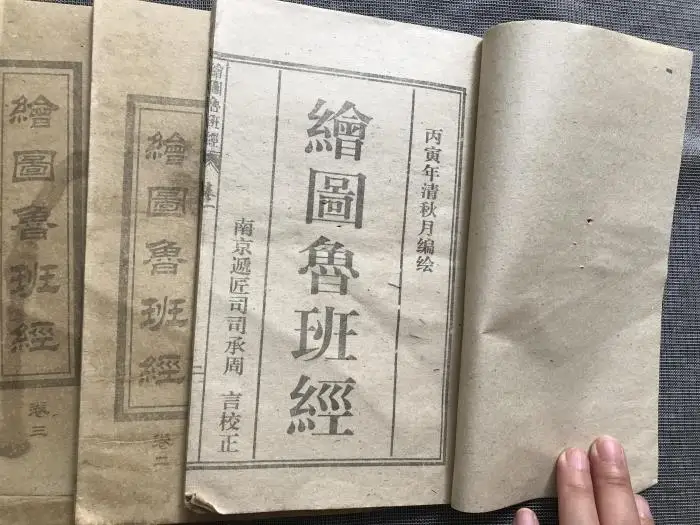 丙寅年清秋月编绘
繪圖魯班經
南京遞匠司司承周 言校正
繪圖魯班經
卷一
繪圖魯班經
卷二
繪圖魯班經
卷三